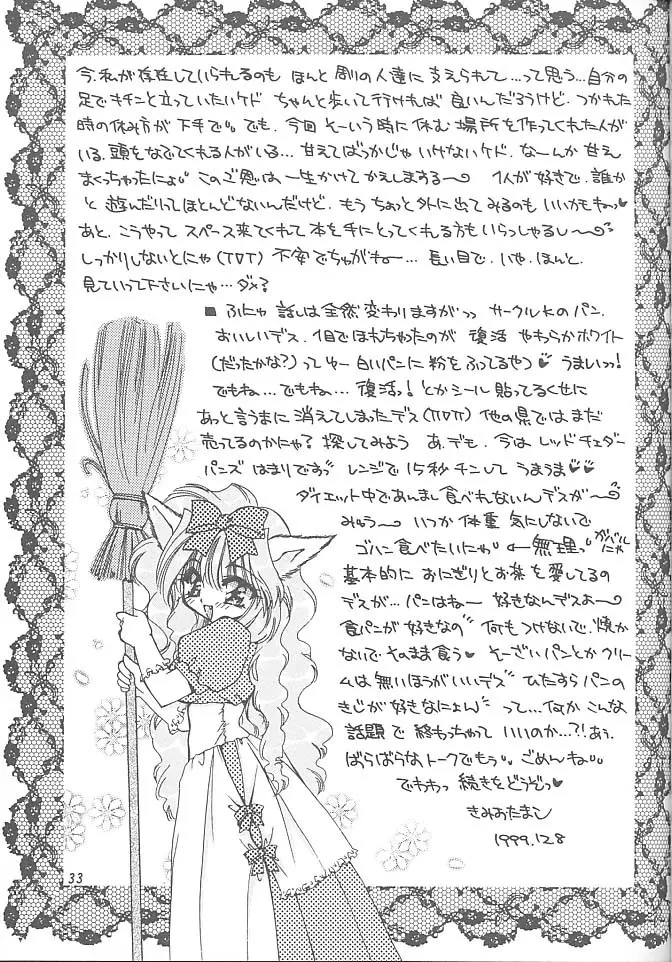 今、私が存在していられるのも ほんと 周りの人達に 支えられて…って思う…自分の
足でキチンと立っていたいケド ちゃんと歩いて行ければ 良いんだろうけど、つかれた
時の休み方が 下手で。。でも、今回 そーいう時に休む 場所を作ってくれた人が
いる、頭をなでてくれる人がいる…甘えてばっかじゃ いけないケド、なーんか甘え
まくっちゃったにょ。。このご恩は一生かけて かえしまする〜 1人が好きで、誰か
と 遊んだりって ほとんどないんだけど、もう ちょっと外に出てみるのも いいかもねっ♥
あと、こうやって スペース来てくれて 本を手にとってくれる方も いらっしゃるし〜
しっかりしないとにゃ(TДT) 不安でちゅがねー… 長い目で、いや、ほんと、
見ていって下さいにゃ…ダメ?
■ ふにゃ 話しは全然変わりますがっっ サークルKのパン、
おいしいデス、1目でほれちゃったのが 復活 やわらかホワイト
(だったかな?)ってゆー 白いパンに 粉をふってるやつ♥ うまいっっ!
でもね…でもね… 復活っ!とかシール 貼ってるくせに
あっと言うまに 消えてしまったデス(TДT) 他の県では、まだ
売ってるのかにゃ? 探してみよう あ、でも、今は レッドチェダー
バーンズ はまりですっっ レンジで 15秒 チンして うまうま♥♥
ダイエット中であんまし食べれないんデスが〜
みゅう〜 いつか 体重 気にしないで
ゴハン食べたいにゃ。←無理っ がんばるにゃ
基本的に おにぎりとお茶を愛してるの
デスが… パンはねー 好きなんデスよー
食パンが好きなの 何もつけないで、焼か
ないで そのまま食う そーざいパンとか クリー
ムは 無いほうがいいデス ひたすら パンの
きじが好きなにょん って…何か こんな
話題 で 終わっちゃって いいのか…?! あぅ、
ばらばらな、トークでもぅ。。ごめんね。。
でわわっ 続きをどうぞっ♥
きみおたまこ
1999.12.8
33